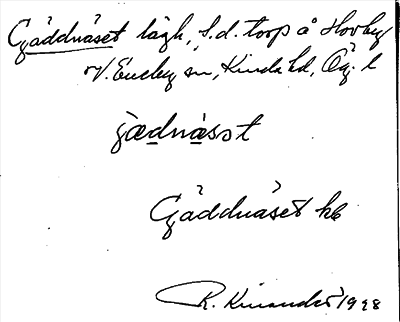 Gäddnäset lägh., f.d. torp å Hovby
V. Eneby sn, Kinda hd, Ög. l
jædnäsət
Gäddnäset kb
R. Kinander 1928